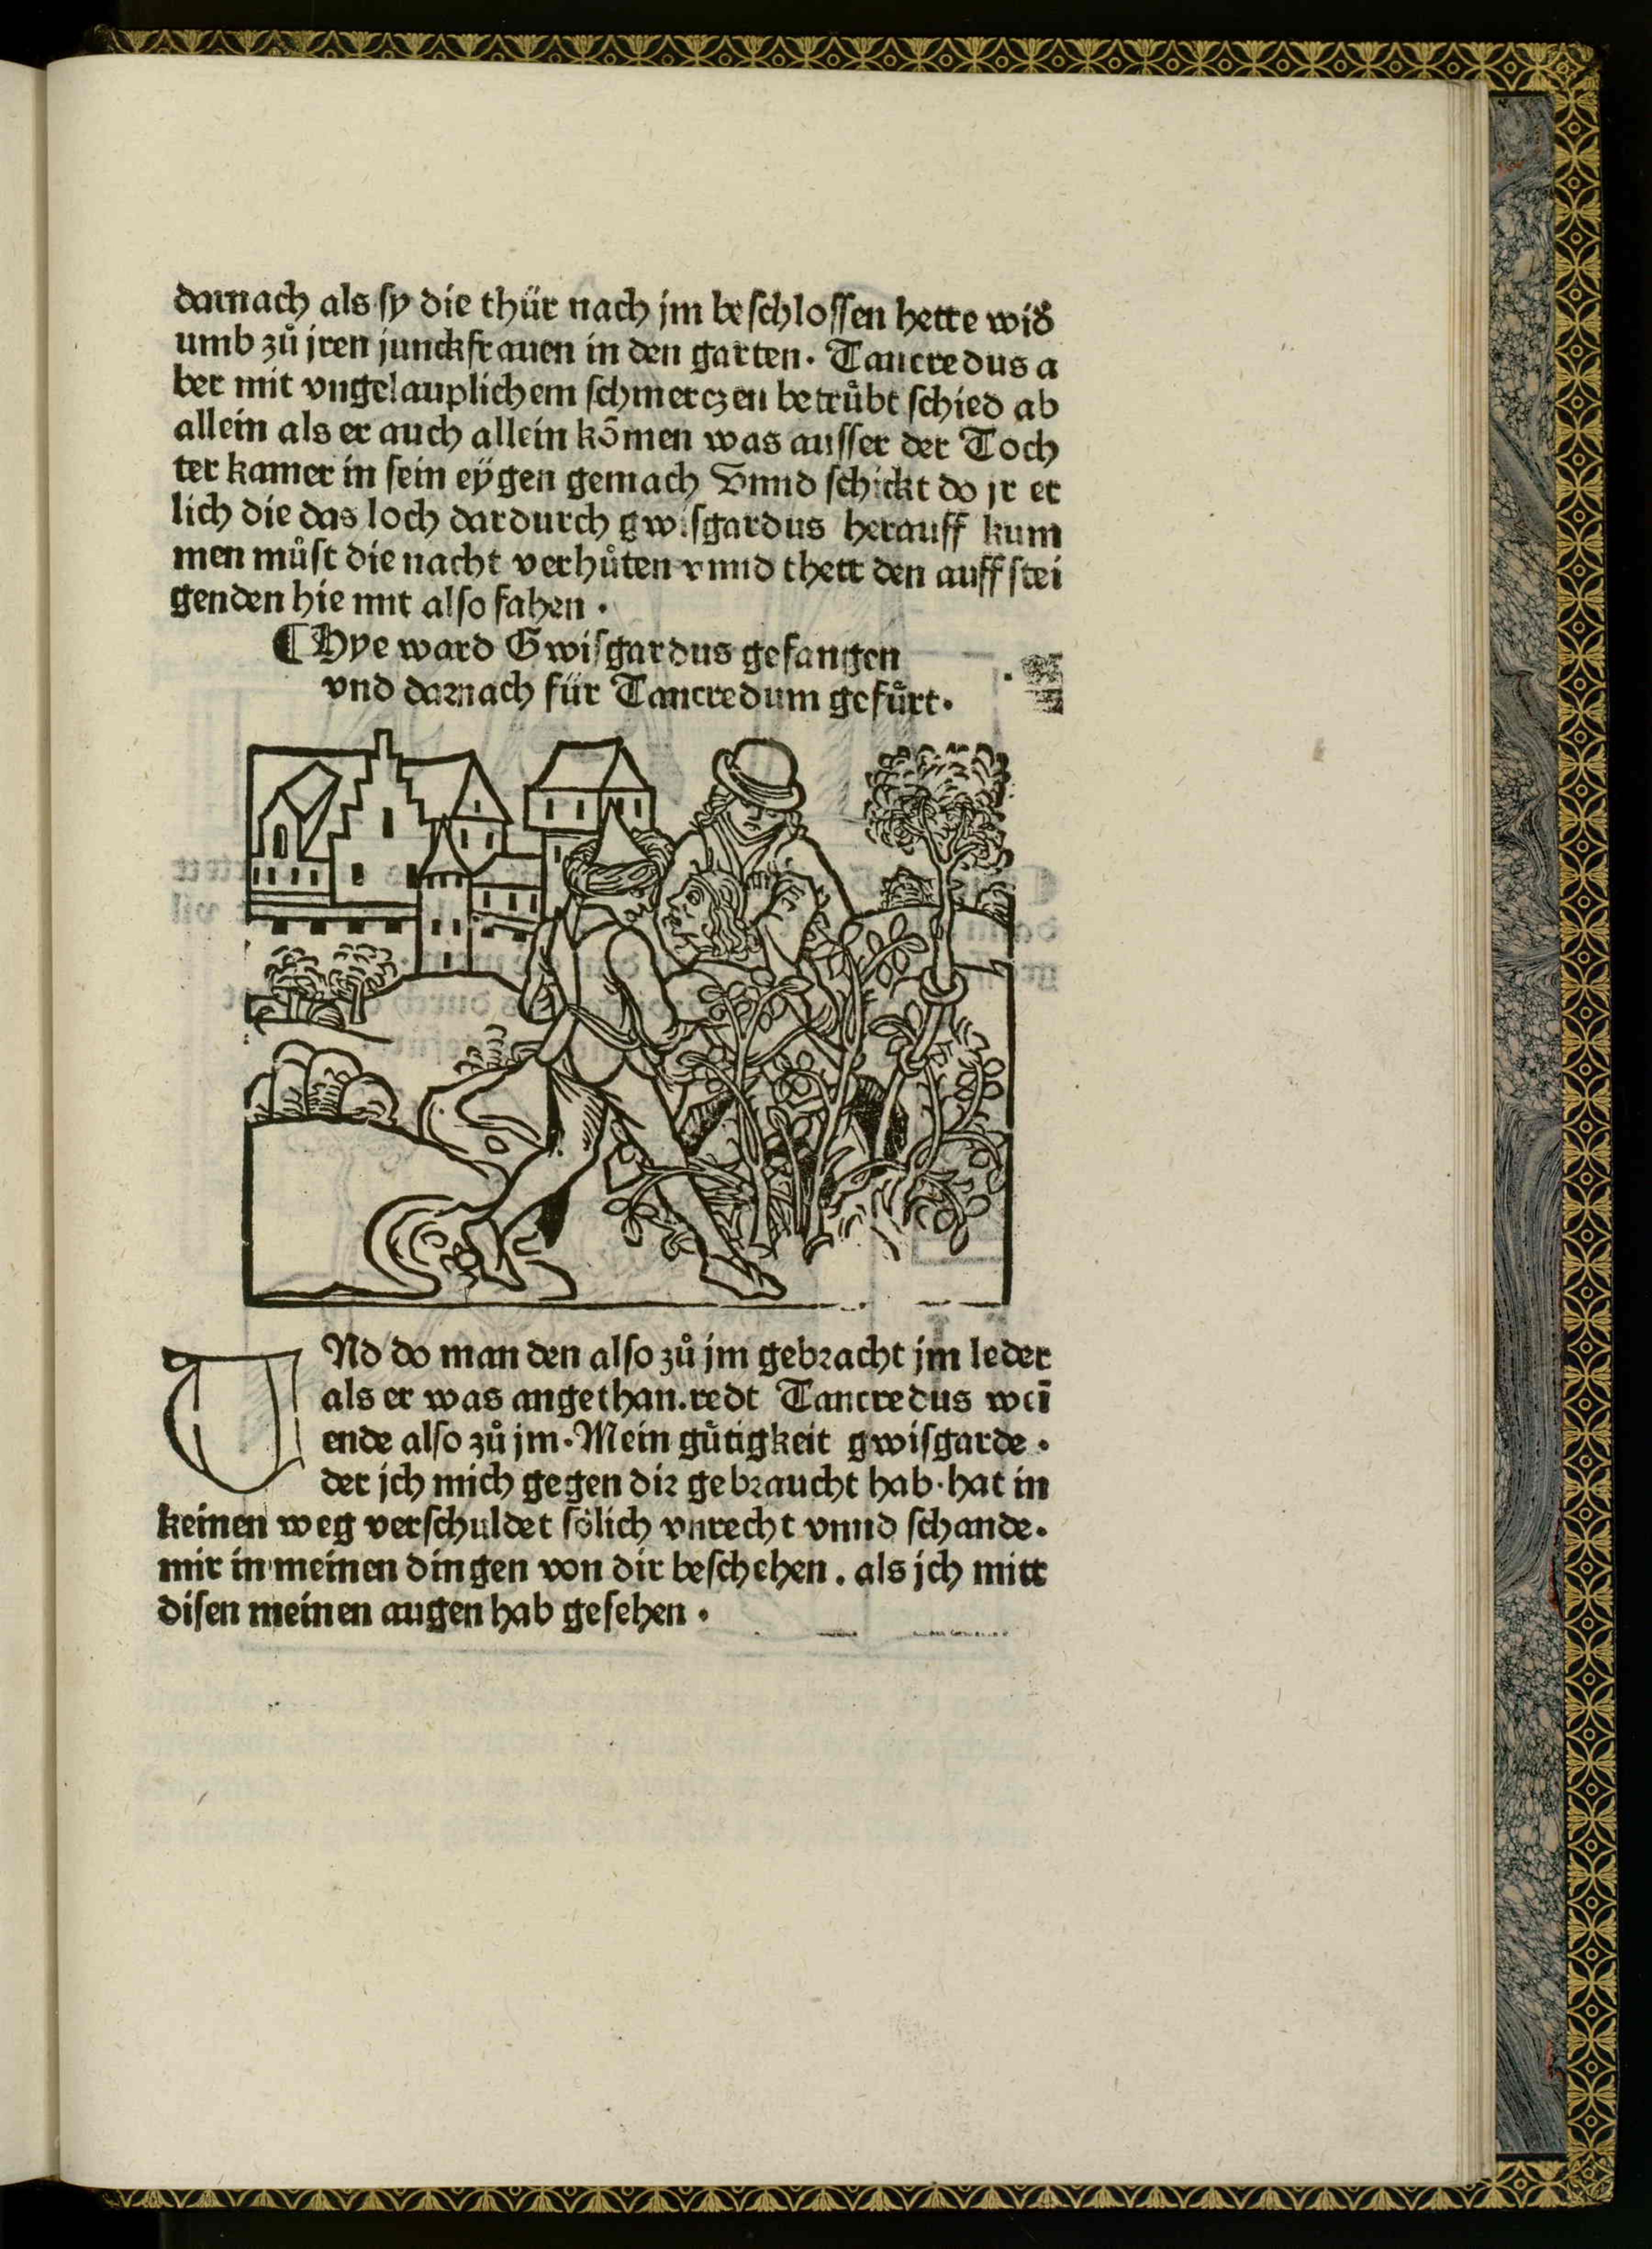 darnach als sy die thür nach jm beschlossen hette wid̕
umb zů jren junckfrauen in den garten. Tancredus a
ber mit vngelauplichem schmerczen betrůbt schied ab
allein als er auch allein kōmen was ausser der Toch
ter kamer in sein eÿgen gemach Vnnd schickt do jr et
lich die das loch dardurch gwisgardus herauff kum
men můst die nacht verhůten vnnd thett den auffstei
genden hie mit also fahen .
¶ Hye ward Gwisgardus gefangen
vnd darnach für Tancredum gefůrt.
UNd do man den also zů jm gebracht jm leder
als er was angethan. redt Tancredus weī
ende also zů jm. Mein gůtigkeit gwisgarde .
der jch mich gegen dir gebraucht hab. hat in
keinen weg verschuldet sölich vnrecht vnnd schande.
mir in meinen dingen von dir beschehen. als jch mitt
disen meinen augen hab gesehen .